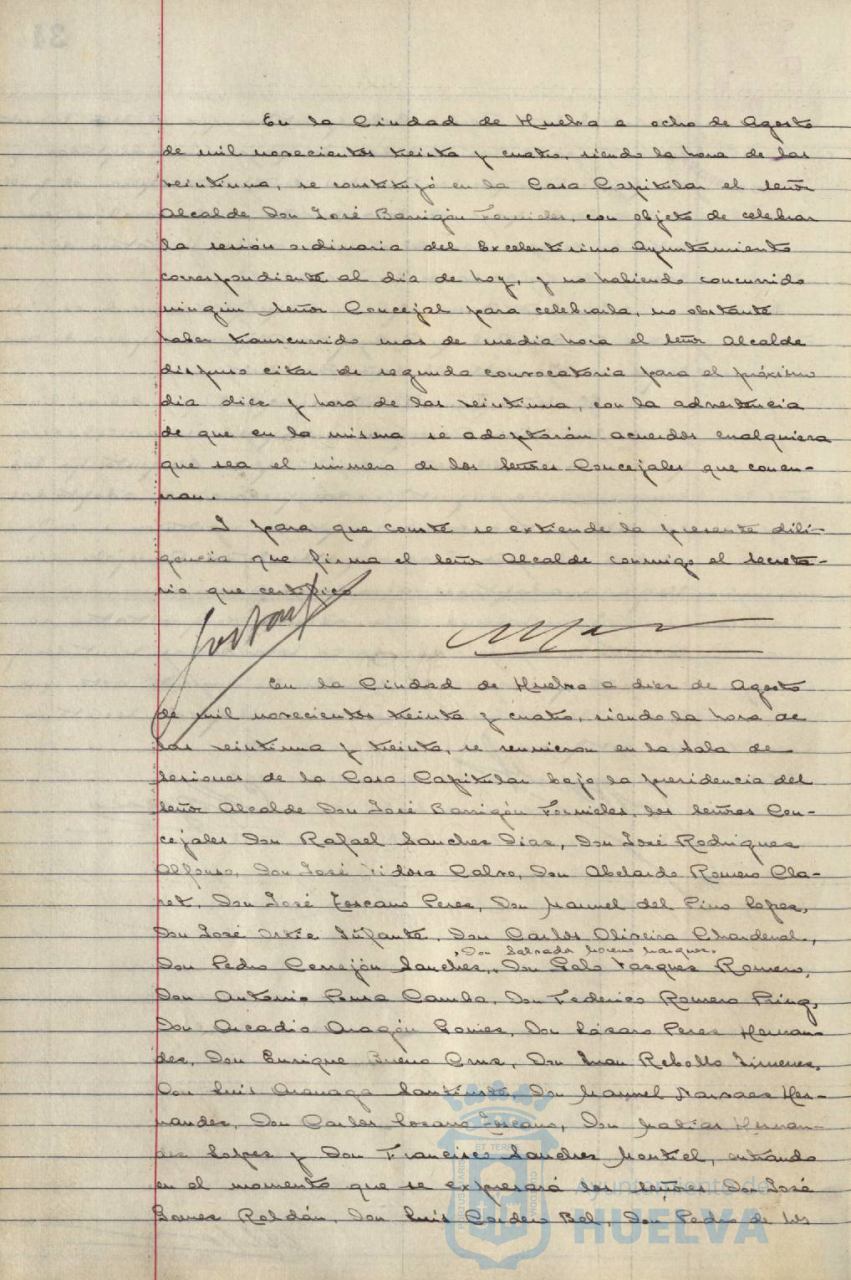 En la Ciudad de Huelva a ocho de Agosto
de mil novecientos treinta y cuatro, siendo la hora de las
veintiuna, se constituyó en la Casa Capitular el señor
Alcalde Don José Barrigón Fornieles, con objeto de celebrar
la sesión ordinaria del Excelentísimo Ayuntamiento
correspondiente al día de hoy, y no habiendo concurrido
ningún señor Concejal para celebrarla, no obstante
haber transcurrido mas de media hora el señor Alcalde
dispuso citar de segunda convocatoria para el próximo
día diez y hora de las veintiuna, con la advertencia
de que en la misma se adoptarán acuerdos cualquiera
que sea el número de los señores Concejales que concu-
rran.
Y para que conste se extiende la presente dili-
gencia que firma el señor Alcalde conmigo el Secreta-
rio que certifico
En la Ciudad de Huelva a diez de Agosto
de mil novecientos treinta y cuatro, siendo la hora de
las veintiuna y treinta, se reunieron en la Sala de
Sesiones de la Casa Capitular bajo la presidencia del
señor Alcalde Don José Barrigón Fornieles, los señores Con-
cejales Don Rafael Sanchez Diaz, Don José Rodriguez
Alfonso, Don José Tidosa Calvo, Don Abelardo Romero Cla-
ret, Don José Toscano Perez, Don Manuel del Pino Lopez,
Don José Ortiz Infante, Don Carlos Oliveira Chardenal,
, Don Salvador Moreno Marquez.
Don Pedro Cerrejón Sanchez, Don Galo Vazquez Romero,
Don Antonio Ponsa Camba, Don Federico Romero
Don Arcadio Aragón Gomez, Don Lázaro Perez Hernan-
dez, Don Enrique Bueno Cruz, Don Juan Rebollo Jimenez,
Don Luis Don Manuel Narvaez Her-
nandez, Don Carlos Lozano Toscano, Don Matías Hernan-
dez Lopez y Don Francisco Sanchez Montiel, entrando
en el momento que se expresará los señores Don José
Gomez Roldán, Don Luis Cordero Bel, Don Pedro de los
Ayuntamiento de
HUELVA